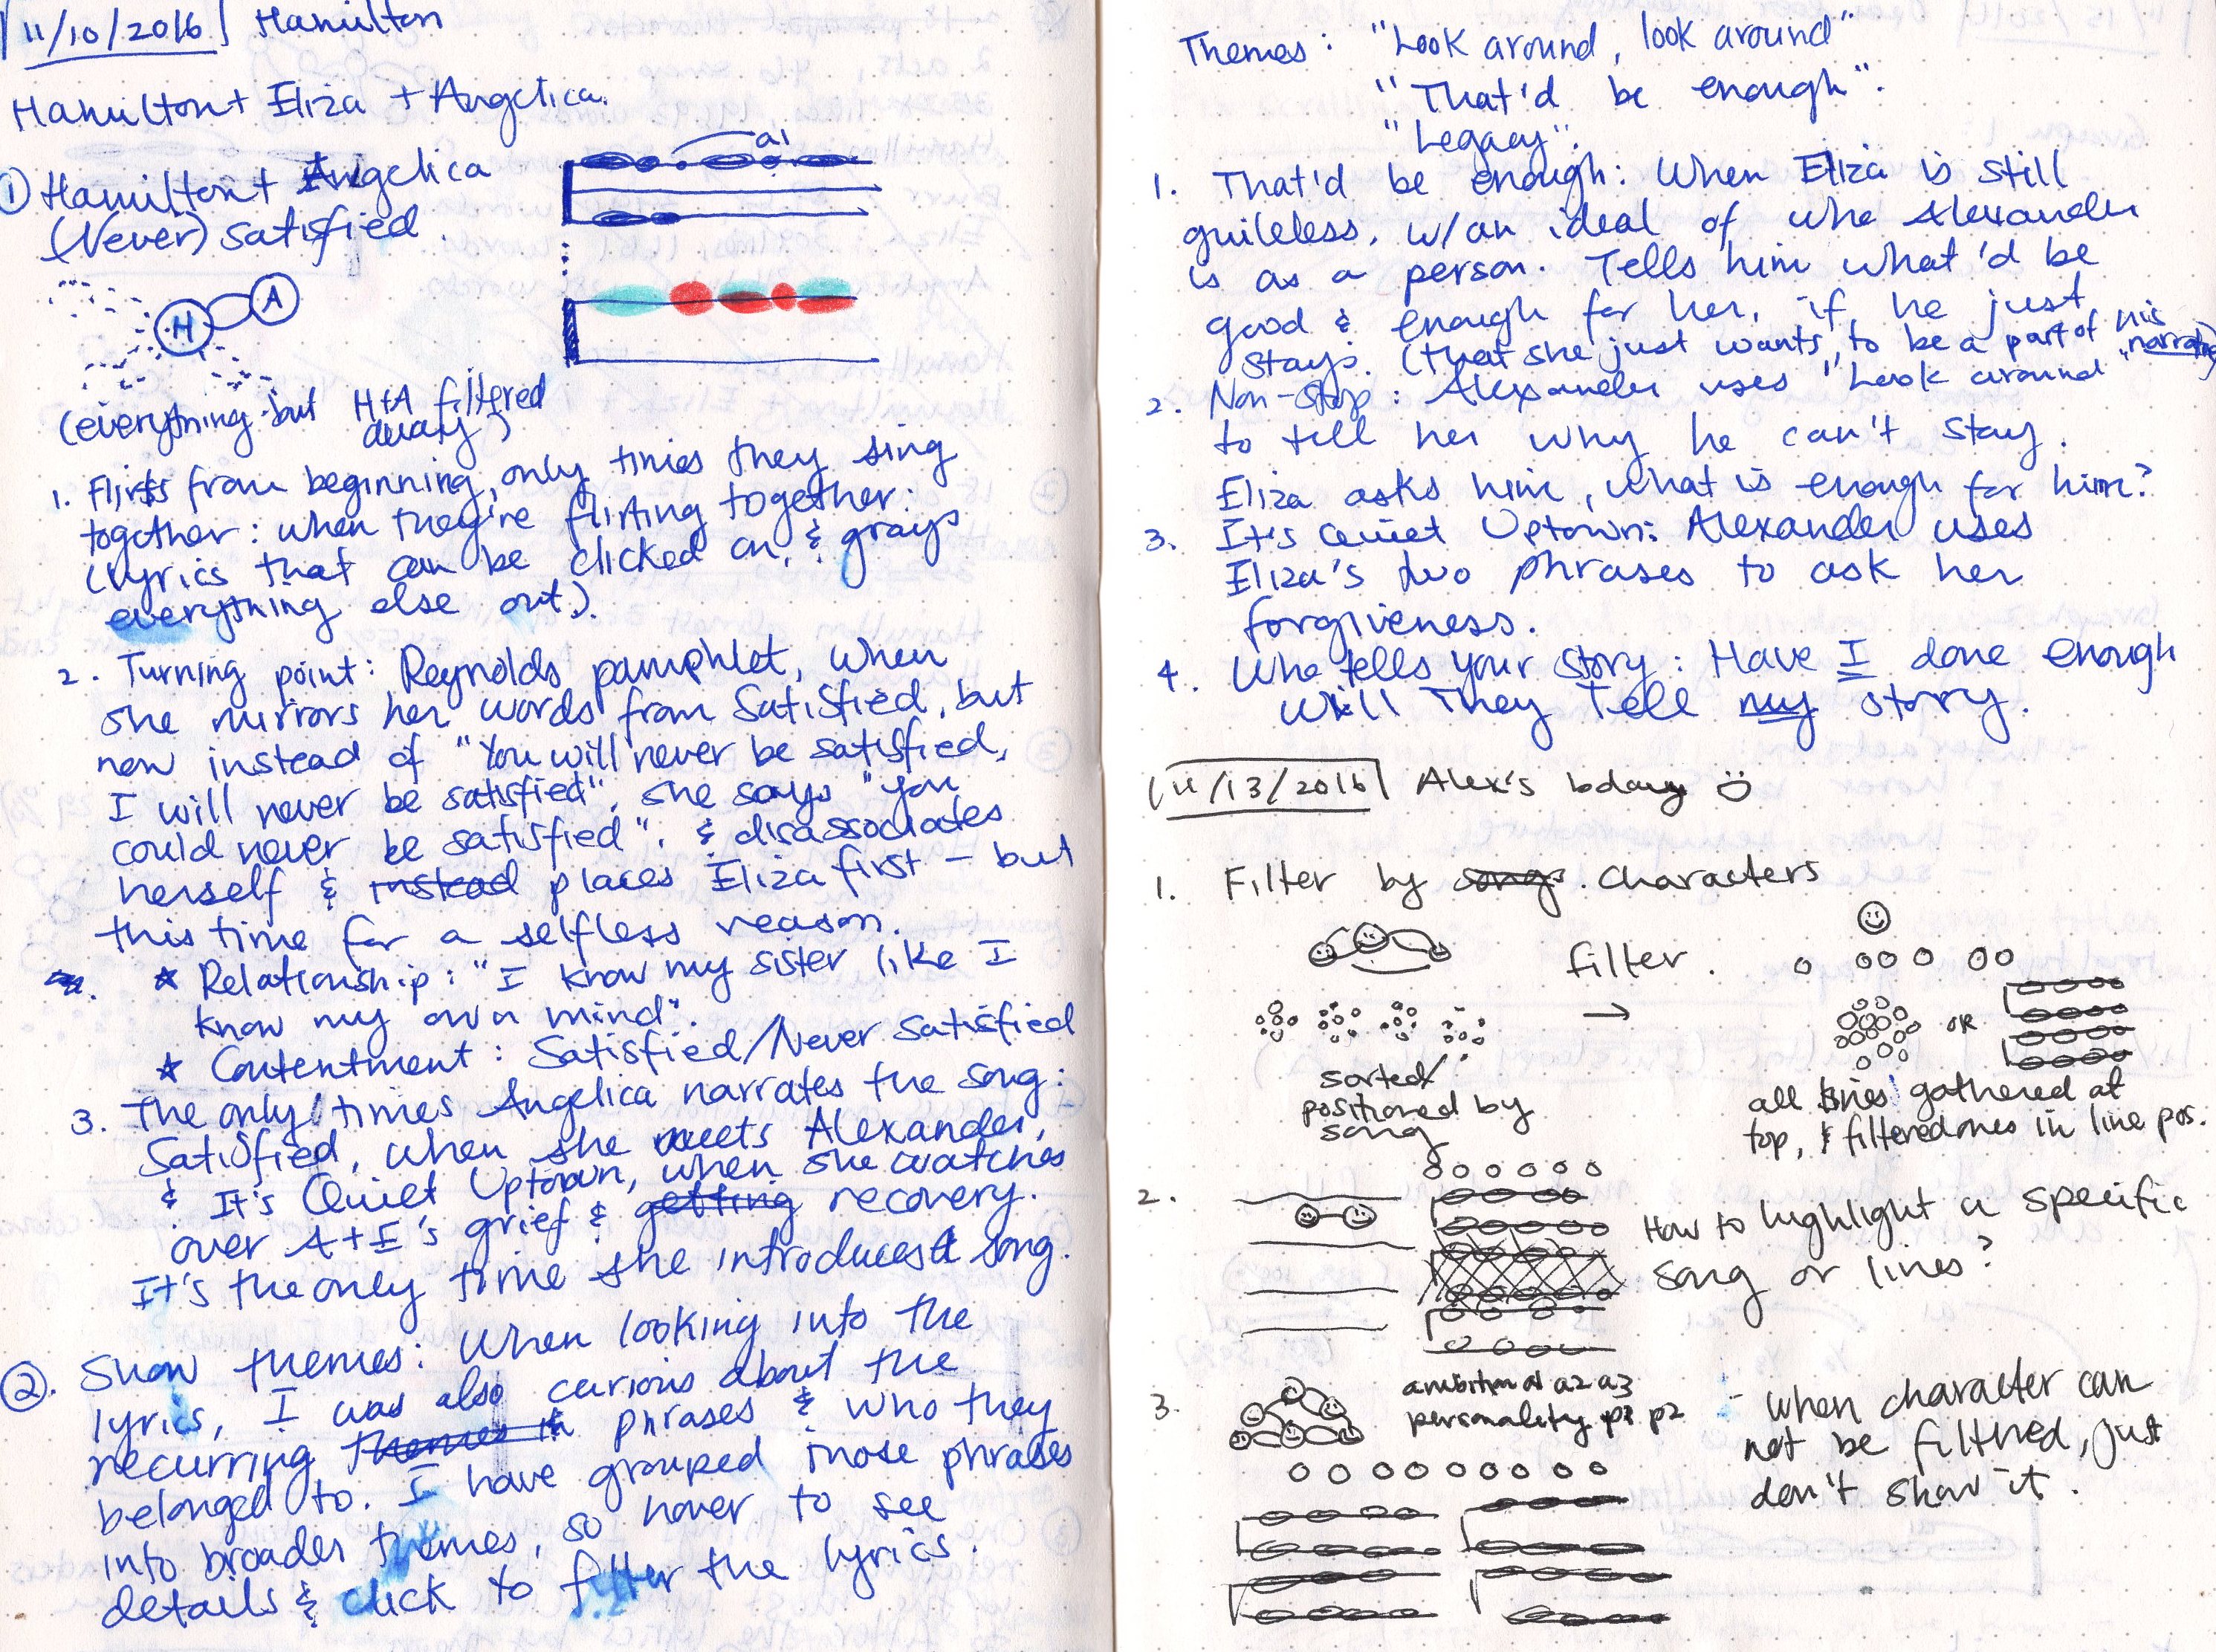 11/10/2016 Hamilton
Hamilton + Eliza + Angelica.
① Hamilton + Angelica
(Never) satisfied.
a1
H A
(everything but H+A filtered
away)
1. Flirts from beginning, only times they sing
together: when they're flirting together:
(lyrics that can be clicked on, & grays
everything else out).
2. Turning point: Reynolds pamphlet, when
she mirrors her words from Satisfied, but
now instead of "You will never be satisfied,
I will never be satisfied", she says "you
could never be satisfied", & disassociates
herself & instead places Eliza first - but
this time for a selfless reason.
* Relationship: "I know my sister like I
know my own mind".
* Contentment: Satisfied/Never Satisfied
3. The only times Angelica narrates the song:
Satisfied, when she meets Alexander,
& It's Quiet Uptown, when she watches
over A+E's grief & getting recovery.
It's the only time she introduces a song.
②. Show themes: When looking into the
lyrics, I was also curious about the
recurring themes in phrases & who they
belonged to. I have grouped those phrases
into broader themes, so hover to see
details & click to filter the lyrics.
Themes: "Look around, look around"
"That'd be enough".
"Legacy".
1. That'd be enough: When Eliza is still
guileless, w/an ideal of who Alexander
is as a person. Tells him what'd be
good & enough for her, if he just
stays. (that she just wants to be a part of his
"narrative")
2. Non-Stop: Alexander uses "Look around"
to tell her why he can't stay.
Eliza asks him, what is enough for him?
3. It's Quiet Uptown: Alexander uses
Eliza's two phrases to ask her
forgiveness.
4. Who tells your story: Have I done enough
Will They Tell my story.
11/13/2016 Alex's bday
1. Filter by songs. characters
filter.
sorted/
positioned by
song
OR
all lines gathered at
top, & filtered ones in line pos.
2.
How to highlight a specific
song or lines?
3.
ambition a1 a2 a3
personality p1 p2
- when character can
not be filtered, just
don't show it.